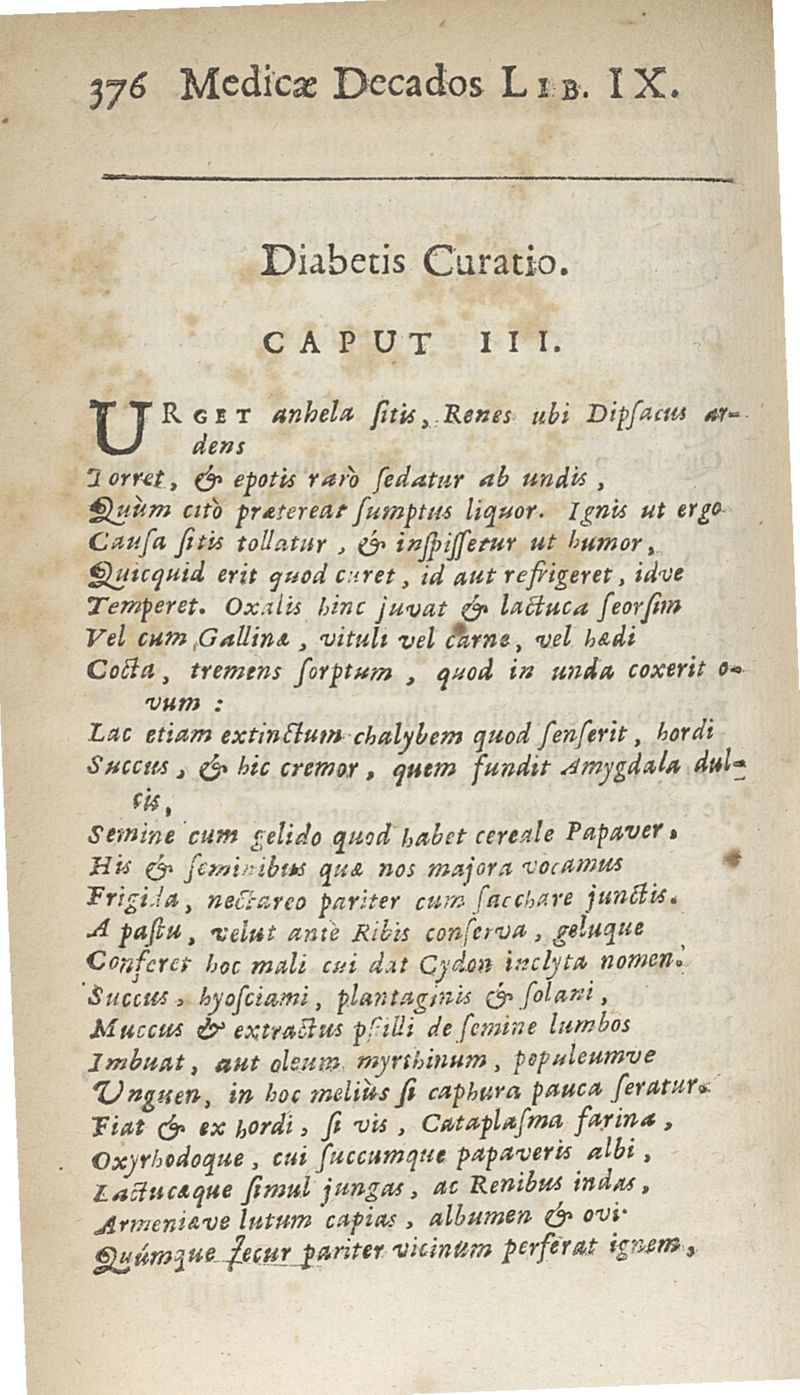 376 Medicæ Decados LIB. IX.
Diabetis Curatio.
CAPUT III.
URGET anhela ſitis, Renes ubi Dipſacus ar-
dens
Torret, & epotis rarò ſedatur ab undis,
Quùm citò prætereat ſumptus liquor. Ignis ut ergo
Cauſa ſitis tollatur, & inſpiſſetur ut humor,
Quicquid erit quod curet, id aut refrigeret, idve
Temperet. Oxalis hinc juvat & lactuca ſeorſim
Vel cum Gallinæ, vituli vel carne, vel hædi
Cocta, tremens ſorptum, quod in unda coxerit o-
vum:
Lac etiam extinctum chalybem quod ſenſerit, hordi
Succus, & hic cremor, quem fundit Amygdala dul-
cis,
Semine cum gelido quod habet cereale Papaver,
His & ſeminibus quæ nos majora vocamus
Frigida, nectareo pariter cum ſacchare junctis.
A paſtu, velut antè Ribis conſerva, geluque
Conferet hoc mali cui dat Cydon inclyta nomen.
Succus, hyoſciami, plantaginis & ſolani,
Muccus & extractus pſilli de ſemine lumbos
Imbuat, aut oleum myrthinum, populeumve
Unguen, in hoc meliùs ſi caphura pauca ſeratur.
Fiat & ex hordi, ſi vis, Cataplaſma farina,
Oxyrhodoque, cui ſuccumque papaveris albi,
Lactucæque ſimul jungas, ac Renibus indas,
Armeniæve lutum capias, albumen & ovi
Quúmque Jecur pariter vicinum perferat ignem,